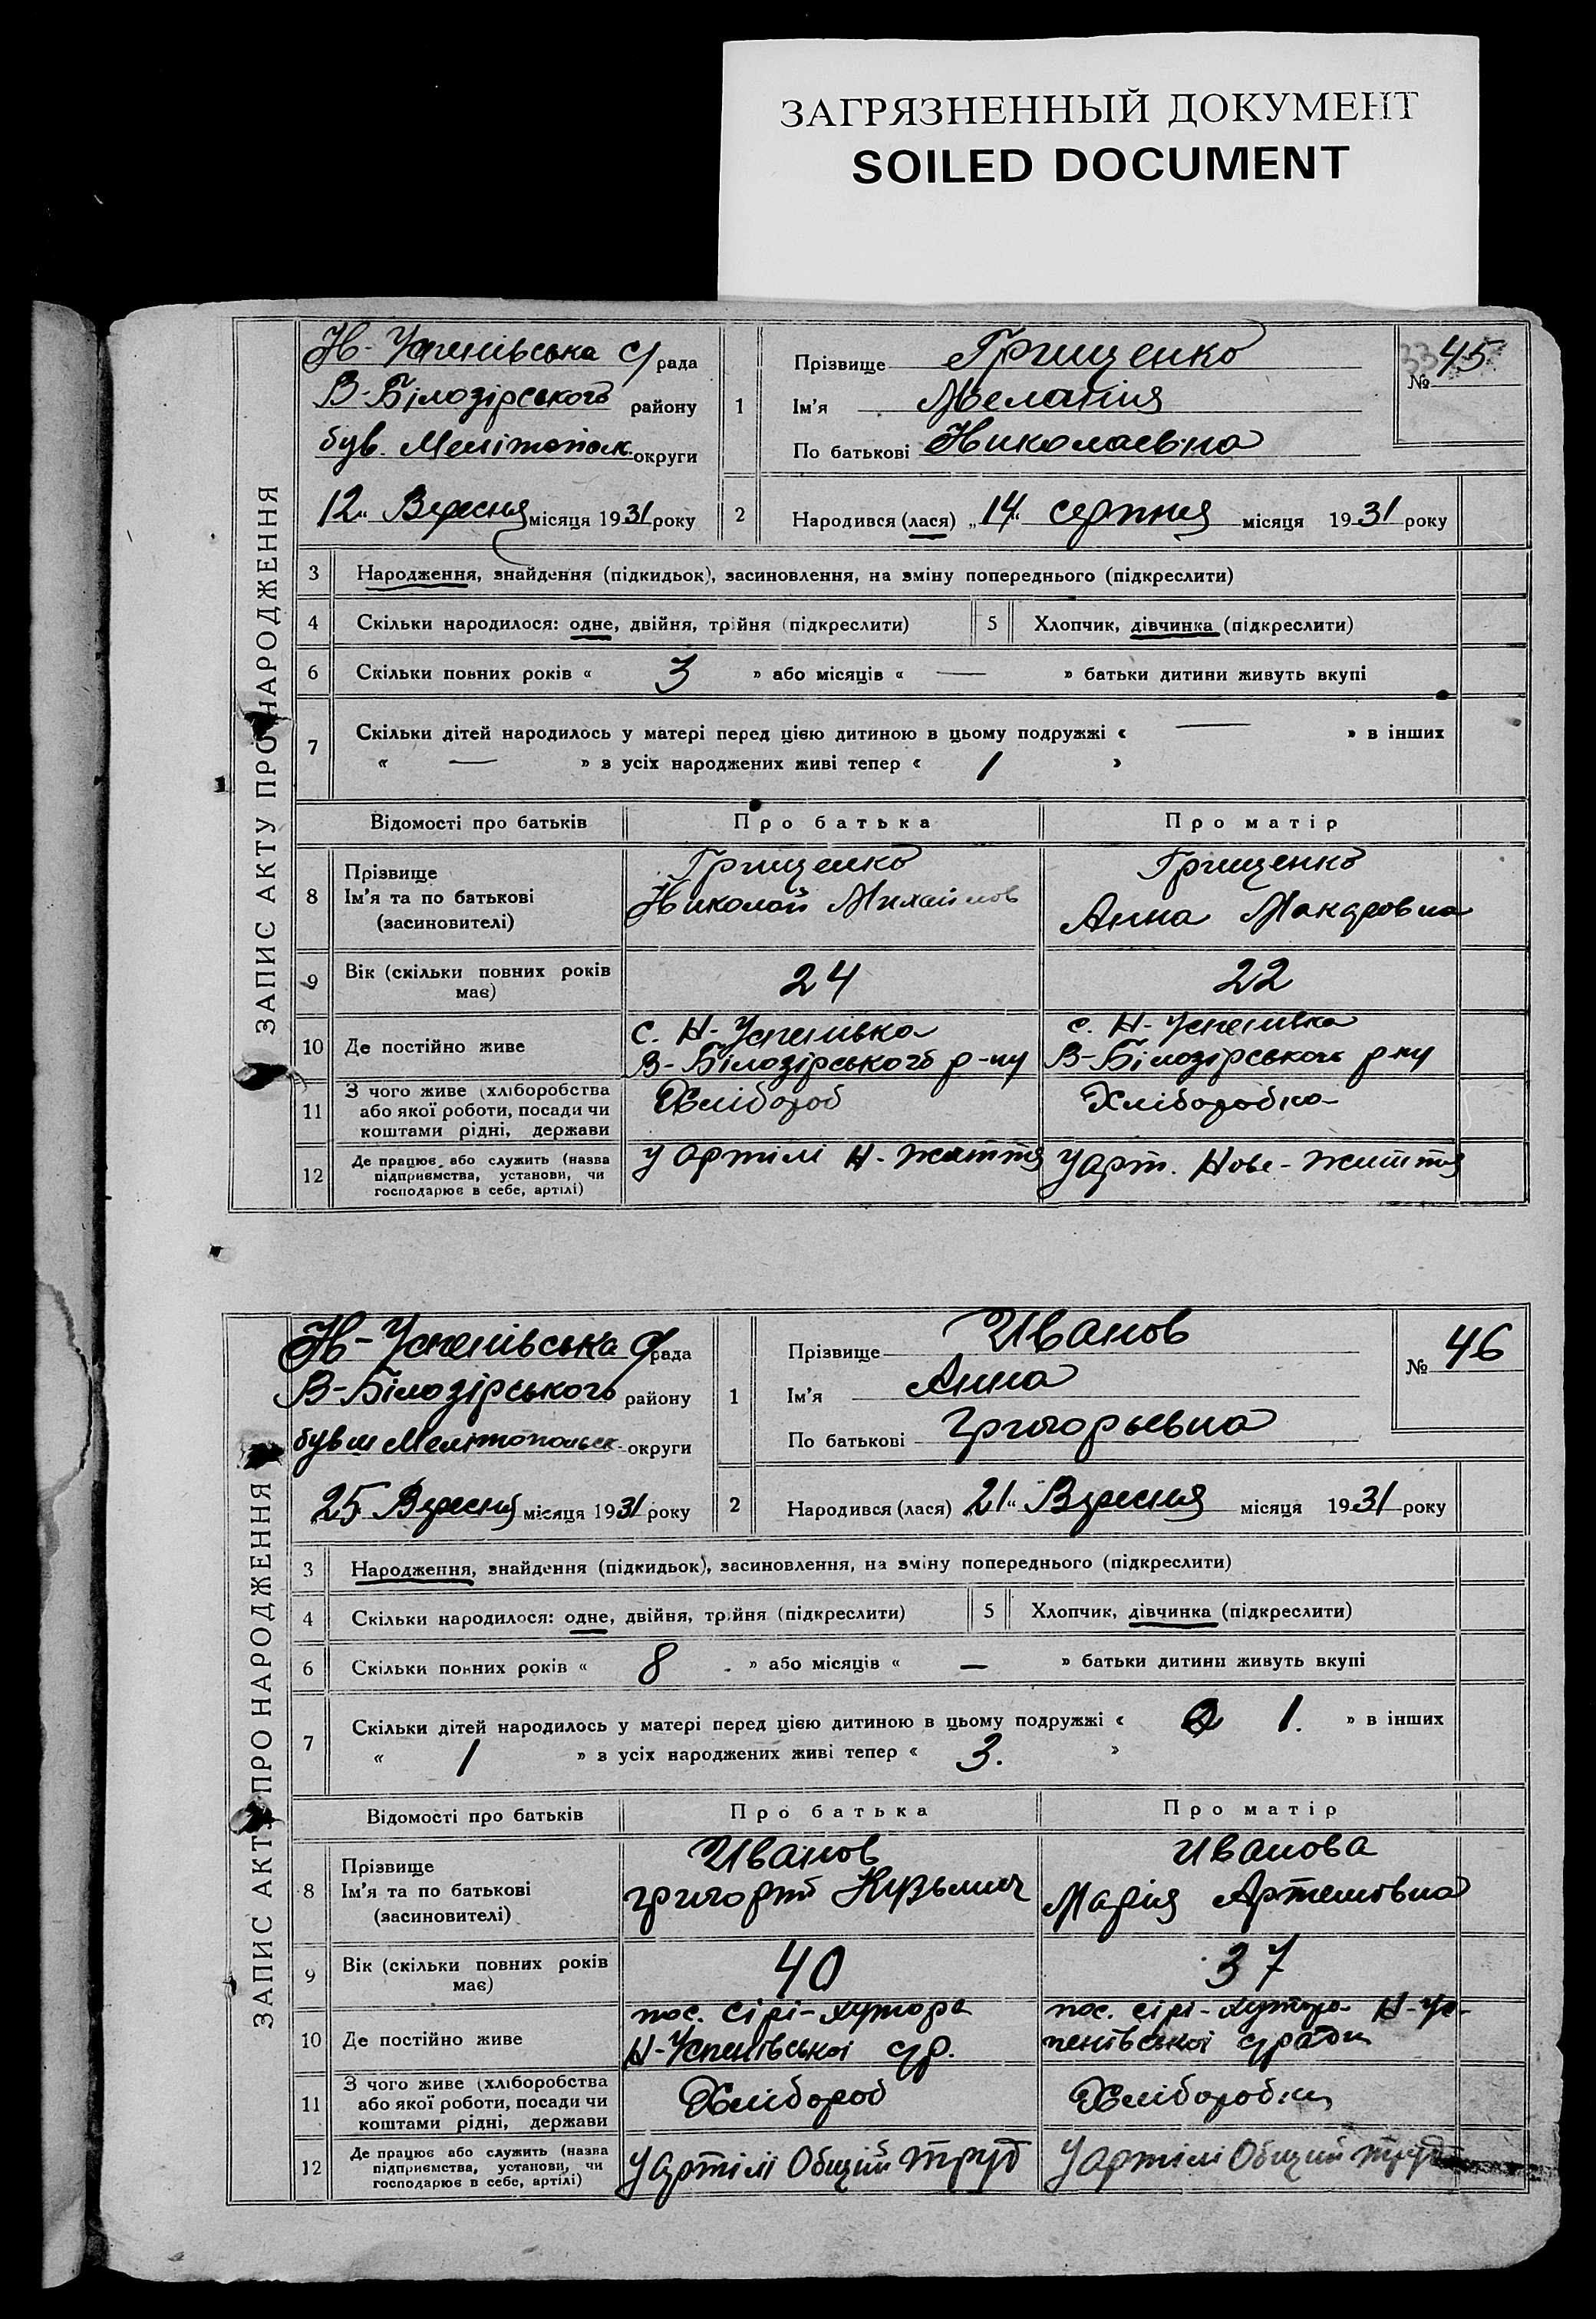 ЗАГРЯЗНЕННЫЙ ДОКУМЕНТ
SOILED DOCUMENT
ЗАПИС АКТУ ПРО НАРОДЖЕННЯ
Н-Успенівська с/рада
В-Білозірського району
був. Мелітопольск. округи
12 Вересня місяця 1931 року
1
Прізвище Грищенко
Ім'я Меланія
По батькові Николаевна
№ 45
2
Народився (лася) „14" серпня місяця 1931 року
3 Народження, знайдення (підкидьок), засиновлення, на зміну попереднього (підкреслити)
4 Скільки народилося: одне, двійня, трійня (підкреслити) 5 Хлопчик, дівчинка (підкреслити)
6 Скільки повних років « 3 » або місяців « — » батьки дитини живуть вкупі
7 Скільки дітей народилось у матері перед цією дитиною в цьому подружжі « — » в інших
« — » з усіх народжених живі тепер « 1 »
Відомості про батьків Про батька Про матір
8 Прізвище
Ім'я та по батькові
(засиновителі)
Грищенко
Николай Михайлов
Грищенко
Анна Макаровна
9 Вік (скільки повних років
має)
24
22
10 Де постійно живе
с. Н-Успенівка
В-Білозірського р-ну
с. Н-Успенівка
В-Білозірського р-ну
11 З чого живе (хліборобства
або якої роботи, посади чи
коштами рідні, держави
Хлібороб
Хліборобка
12 Де працює або служить (назва
підприємства, установи, чи
господарює в себе, артілі)
У артілі Н-життя
У арт. Нове-життя
ЗАПИС АКТУ ПРО НАРОДЖЕННЯ
Н-Успенівська с/рада
В-Білозірського району
бувш Мелітопольск. округи
25 Вересня місяця 1931 року
1
Прізвище Иванов
Ім'я Анна
По батькові Григорьевна
№ 46
2
Народився (лася) „21" Вересня місяця 1931 року
3 Народження, знайдення (підкидьок), засиновлення, на зміну попереднього (підкреслити)
4 Скільки народилося: одне, двійня, трійня (підкреслити) 5 Хлопчик, дівчинка (підкреслити)
6 Скільки повних років « 8 » або місяців « — » батьки дитини живуть вкупі
7 Скільки дітей народилось у матері перед цією дитиною в цьому подружжі « 1. » в інших
« 1 » з усіх народжених живі тепер « 3. »
Відомості про батьків Про батька Про матір
8 Прізвище
Ім'я та по батькові
(засиновителі)
Иванов
Григорій Кузьмич
Иванова
Марія Артемовна
9 Вік (скільки повних років
має)
40
37
10 Де постійно живе
пос. Сірі-хутора
Н-Успенівської с/р.
пос. Сірі-хутора Н-Ус-
пенівської с/ради
11 З чого живе (хліборобства
або якої роботи, посади чи
коштами рідні, держави
Хлібороб
Хліборобка
12 Де працює або служить (назва
підприємства, установи, чи
господарює в себе, артілі)
У артілі Общий труд
У артілі Общий труд